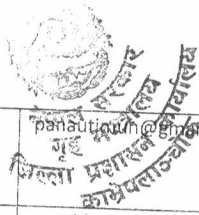 नेपाल सरकार
गृह मन्त्रालय
जिल्ला प्रशासन कार्यालय
काभ्रेपलाञ्चोक
panautimun@gmai